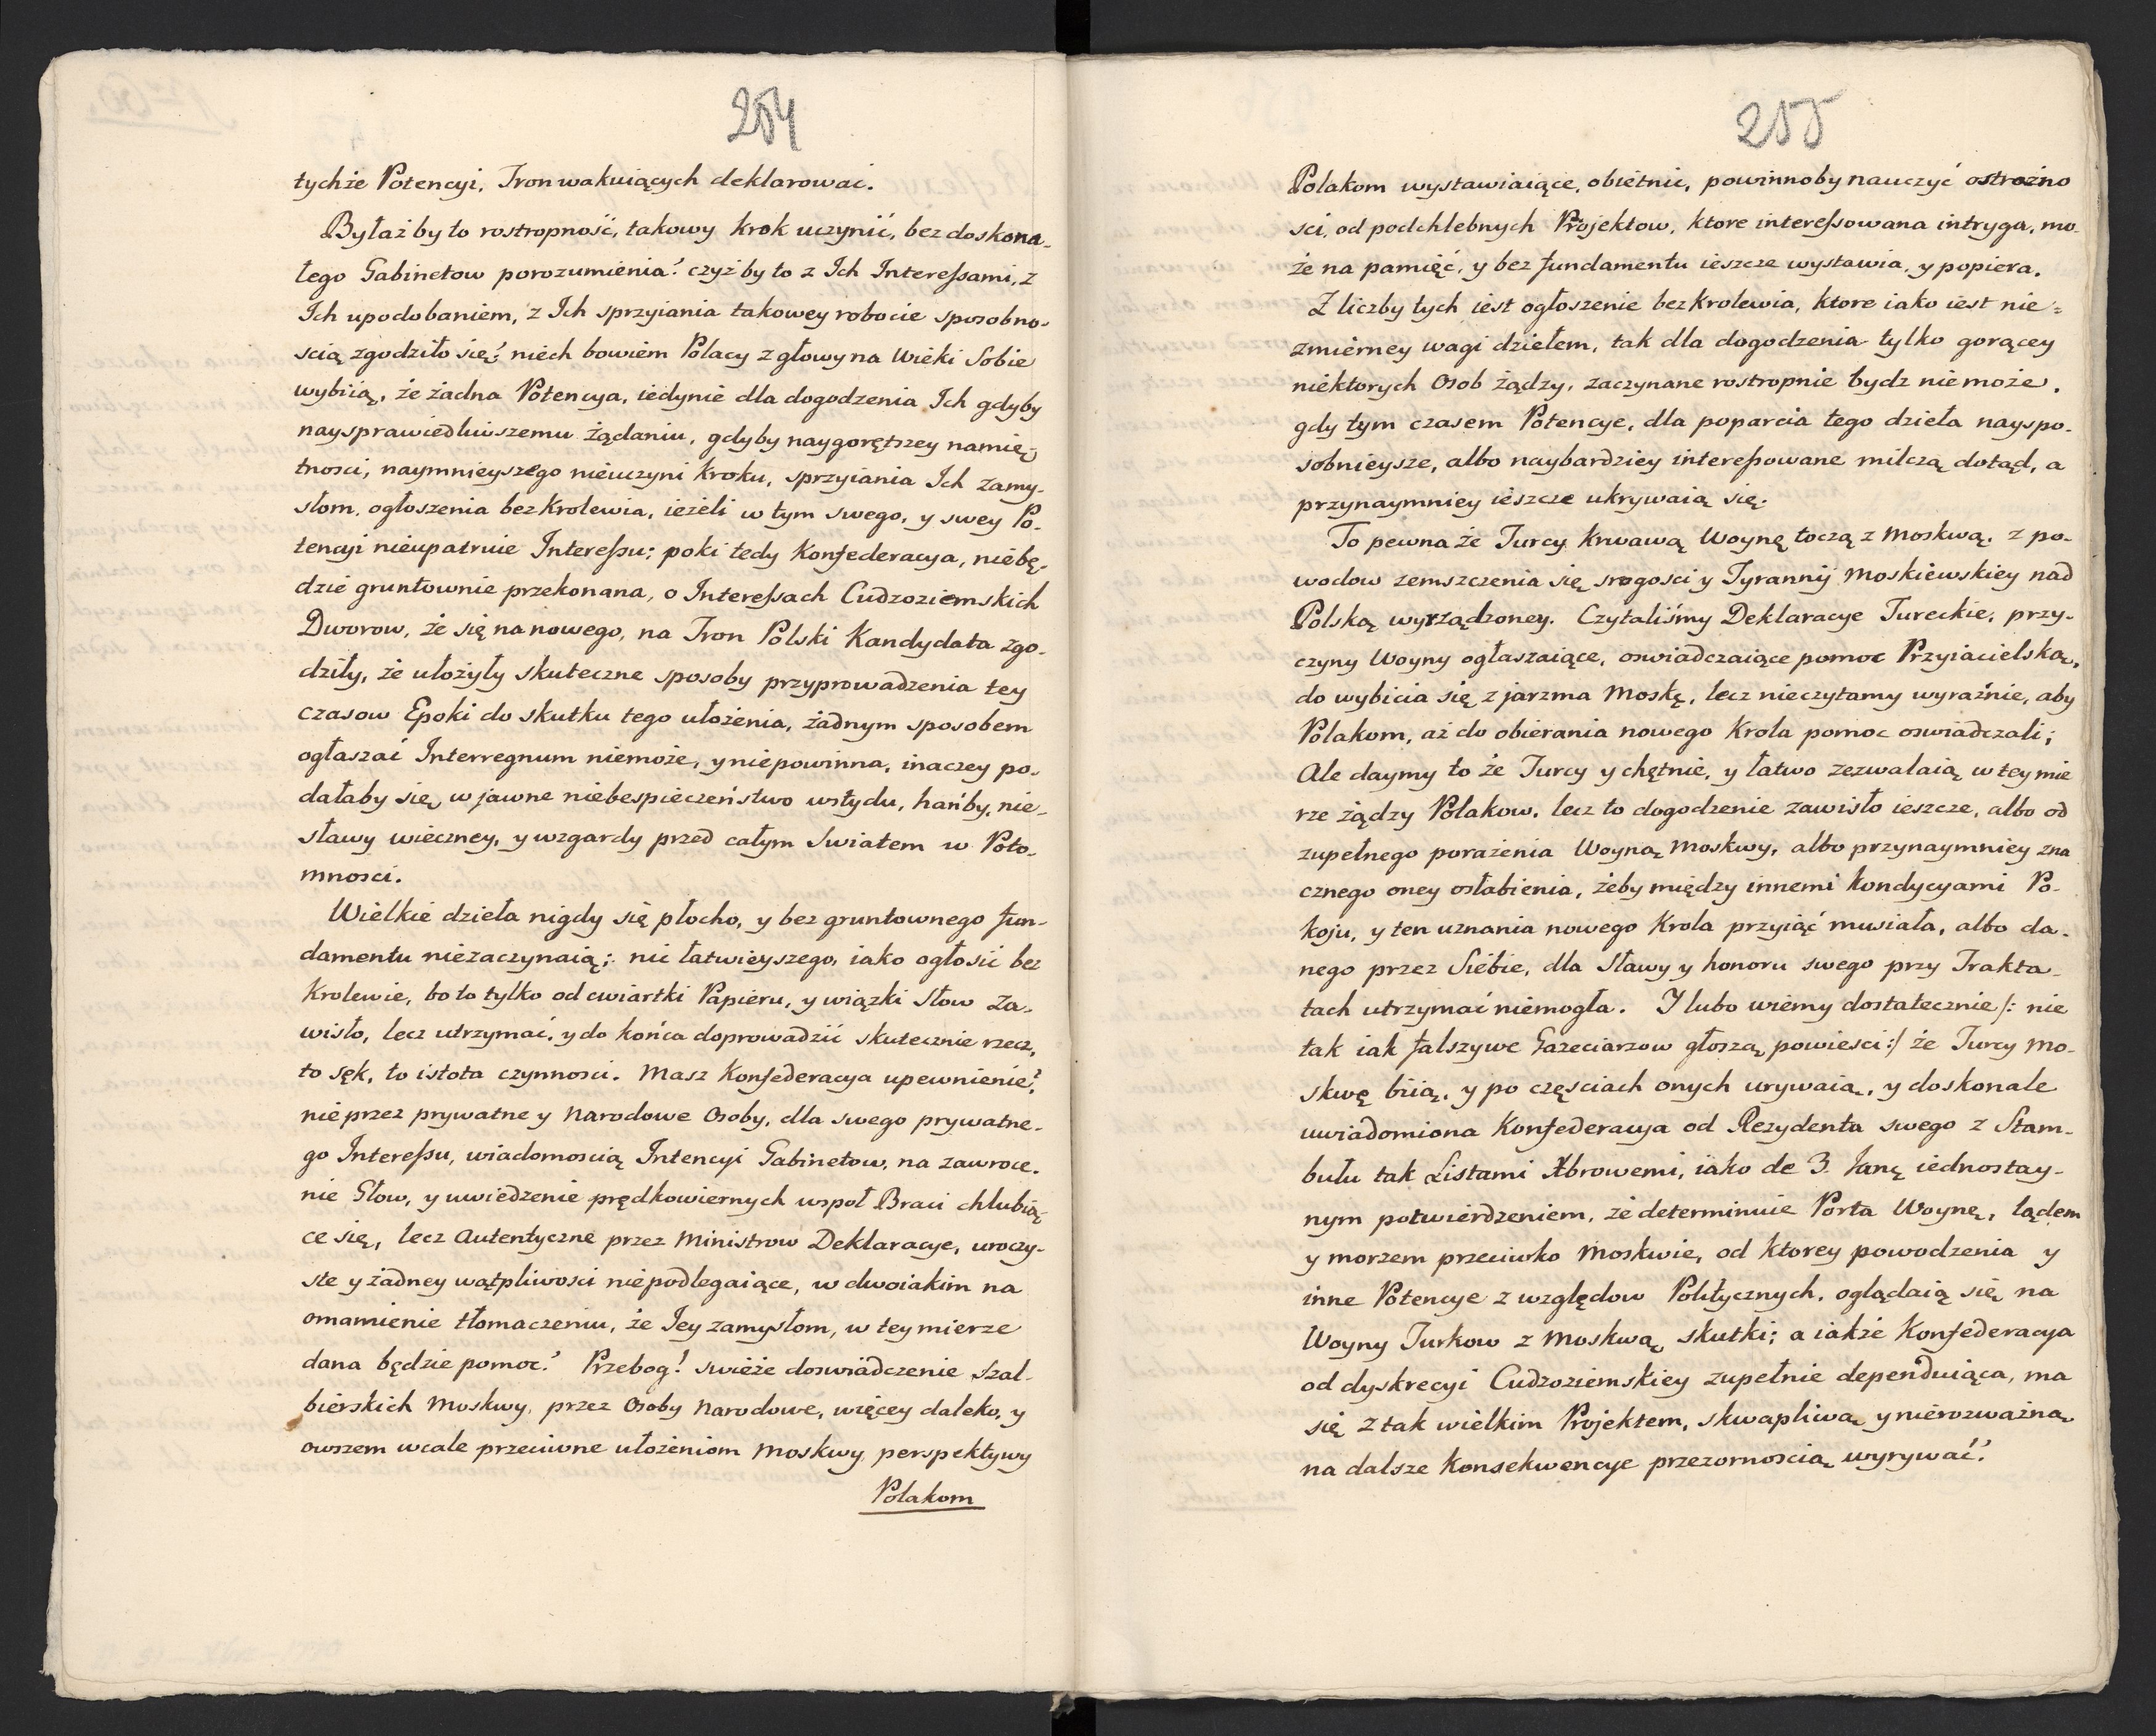 254
tychże Potencyi, Tron wakuiących deklarować.
Byłaż by to rostropność, takowy krok uczynić, bez doskona-
łego Gabinetow porozumienia? czyż by to z Ich Interessami, z
Ich upodobaniem, z Ich sprzyiania takowey robocie sposobno-
scią zgodziło się? niech bowiem Polacy z głowy na wieki Sobie
wybiią, że żadna Potencya, iedynie dla dogodzenia Ich gdyby
naysprawiedliwszemu żądaniu, gdyby naygorętszey namię-
tnosci, naymnieyszego nieuczyni kroku, sprzyiania Ich zamy-
słom, ogłoszenia bezkrolewia, ieżeli w tym swego, y swey Po-
tencyi nieupatruie Interessu; poki tedy Konfederacya, niebę-
dzie gruntownie przekonana, o Interessach Cudzoziemskich
Dworow, że się na nowego, na Tron Polski Kandydata zgo-
dziły, że ułożyły skuteczne sposoby przyprowadzenia tey
czasow Epoki do skutku tego ułożenia, żadnym sposobem
ogłaszać Interregnum niemoże, y niepowinna, inaczey po-
dałaby się, w jawne niebespieczeństwo wstydu, hańby, nie-
sławy wieczney, y wzgardy przed całym Swiatem w Poto-
mnosci.
Wielkie dzieła nigdy się płocho, y bez gruntownego fun-
damentu niezaczynaią; nic łatwieyszego, iako ogłosić bez
Krolewie, bo to tylko od cwiartki Papieru, y wiązki Słow za-
wisło, lecz utrzymać, y do końca doprowadzić skutecznie rzecz,
to sęk, to istota czynnosci. Masz Konfederacya upewnienie?
nie przez prywatne y Narodowe Osoby, dla swego prywatne-
go Interessu, wiadomoscią Intencyi Gabinetow, na zawroce-
nie Głow, y uwiedzenie prędkowiernych wspoł Braci chlubią-
ce się, lecz Autentyczne przez Ministrow Deklaracye, uroczy-
ste y żadney wątpliwosci niepodlegaiące, w dwoiakim na
omamienie tłomaczeniu, że Jey zamysłom, w tey mierze
dana będzie pomoc? Przebog! swieże doswiadczenie Szal-
bierskich Moskwy, przez Osoby Narodowe, więcey daleko, y
owszem wcale przeciwne ułożeniom Moskwy perspektywy
Polakom
255
Polakom wystawiaiące, obietnic, powinnoby nauczyć ostrożno
sci, od podchlebnych Projektow, ktore interessowana intryga, mo-
że na pamięć, y bez fundamentu ieszcze wystawia, y popiera.
Z liczby tych iest ogłoszenie bezkrolewia, ktore iako iest nie=
zmierney wagi dziełem, tak dla dogodzenia tylko gorącey
niektorych Osob żądzy, zaczynane rostropnie bydz niemoże,
gdy tym czasem Potencye, dla poparcia tego dzieła nayspo-
sobnieysze, albo naybardziey interessowane milczą dotąd, a
przynaymniey ieszcze ukrywaią się.
To pewna że Turcy krwawą Woynę toczą z Moskwą, z po-
wodow zemszczenia się srogosci y Tyrannij Moskiewskiey nad
Polską wyrządzoney. Czytaliśmy Deklaracye Tureckie, przy-
czyny Woyny ogłaszaiące, oswiadczaiące pomoc Przyiacielską,
do wybicia się z jarzma Moskę, lecz nieczytamy wyraźnie, aby
Polakom, aż do obierania nowego Krola pomoc oswiadczali;
Ale daymy to że Turcy y chętnie, y łatwo zezwalaią w tey mie
rze żądzy Polakow, lecz to dogodzenie zawisło ieszcze, albo od
zupełnego porażenia Woyną Moskwy, albo przynaymniey zna
cznego oney osłabienia, żeby między innemi kondycyami Po-
koju, y ten uznania nowego Krola przyiąć musiała, albo da-
nego przez Siebie, dla Sławy y honoru swego przy Trakta-
tach utrzymać niemogła. Y lubo wiemy dostatecznie /: nie
tak iak fałszywe Gazeciarzow głoszą powiesci :/ że Turcy Mo-
skwę biią, y po częsciach onych urywaią, y doskonale
uwiadomiona Konfederacya od Rezydenta swego z Stam-
bułu tak Listami Xbrowemi, iako de 3. Janę iednostay-
nym potwierdzeniem, że determinuie Porta Woynę, lądem
y morzem przeciwko Moskwie, od ktorey powodzenia y
inne Potencye z względow Politycznych, oglądaią się na
Woyny Turkow z Moskwą skutki; a iakże Konfederacya
od dyskrecyi Cudzoziemskiey zupełnie dependuiąca, ma
się z tak wielkim Projektem, skwapliwą y nierozważną
na dalsze konsekwencye przezornoscią wyrywać?